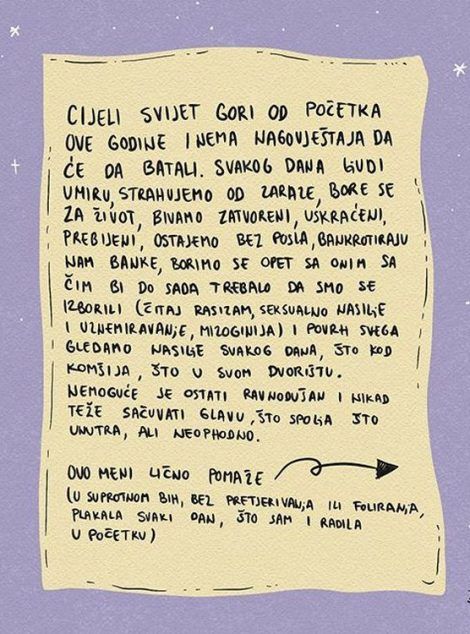 CIJELI SVIJET GORI OD POČETKA
OVE GODINE I NEMA NAGOVJEŠTAJA DA
ĆE DA BATALI. SVAKOG DANA LJUDI
UMIRU, STRAHUJEMO OD ZARAZE, BORE SE
ZA ŽIVOT, BIVAMO ZATVORENI, USKRAĆENI,
PREBIJENI, OSTAJEMO BEZ POSLA, BANKROTIRAJU
NAM BANKE, BORIMO SE OPET SA ONIM SA
ČIM BI DO SADA TREBALO DA SMO SE
IZBORILI (ČITAJ RASIZAM, SEKSUALNO NASILJE
I UZNEMIRAVANJE, MIZOGINIJA) I POVRH SVEGA
GLEDAMO NASILJE SVAKOG DANA, ŠTO KOD
KOMŠIJA, ŠTO U SVOM DVORIŠTU.
NEMOGUĆE JE OSTATI RAVNODUŠAN I NIKAD
TEŽE SAČUVATI GLAVU, ŠTO SPOLJA ŠTO
UNUTRA, ALI NEOPHODNO.
OVO MENI LIČNO POMAŽE
(U SUPROTNOM BIH, BEZ PRETJERIVANJA ILI FOLIRANJA,
PLAKALA SVAKI DAN, ŠTO SAM I RADILA
U POČETKU)